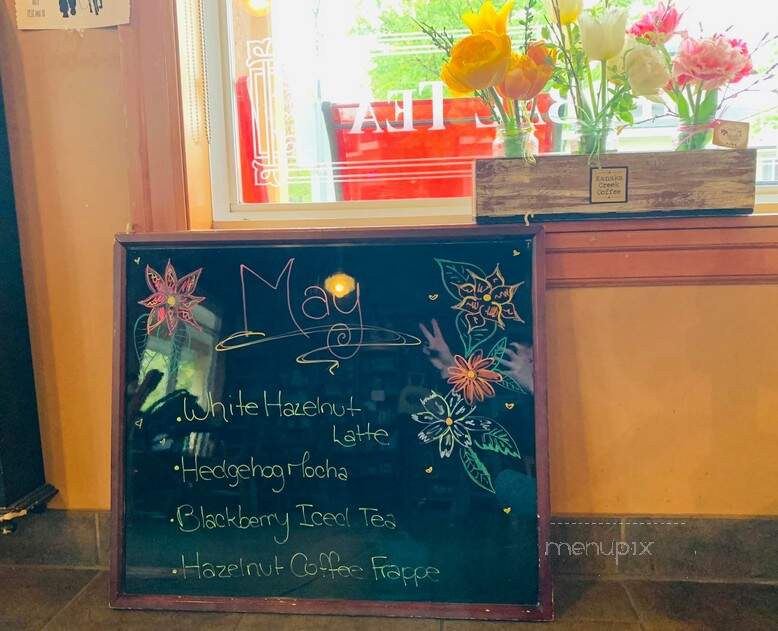 TEA
Kanaka
Creek
Coffee
May
• White Hazelnut
Latte
• Hedgehog Mocha
• Blackberry Iced Tea
• Hazelnut Coffee Frappe
menupix